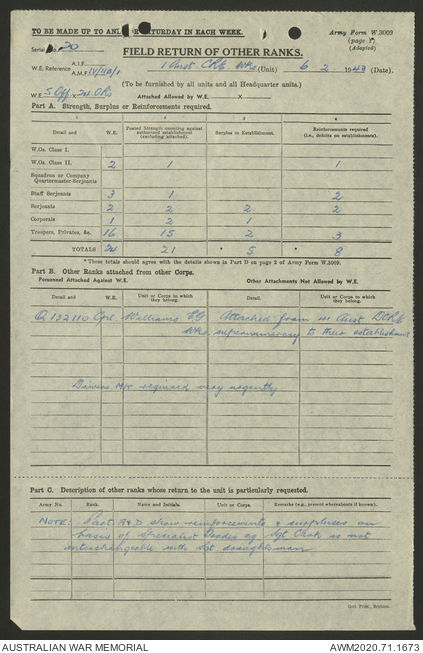 TO BE MADE UP TO AND SATURDAY IN EACH WEEK.
Army Form W.3009
(page 1)
(Adapted)
Serial No. 20
FIELD RETURN OF OTHER RANKS.
W.E. Reference A.I.F.
A.M.F. IV/110/1
1 Aust. CRE Wks (Unit) 6 2 1943 (Date).
(To be furnished by all units and all Headquarter units.)
W.E. 5 Off x 24 ORs Attached Allowed by W.E. X
Part A. Strength, Surplus or Reinforcements required.
Detail and W.E. Posted Strength counting against authorised establishment (excluding attached). Surplus to Establishment. Reinforcements required (i.e., deficits on establishments).
W.Os. Class I.
W.Os. Class II. 2 1 1
Squadron or Company Quartermaster-Serjeants
Staff Serjeants 3 1 2
Serjeants 2 2 2 2
Corporals 1 2 1
Troopers, Privates, &c. 16 15 2 3
TOTALS 24 21 * 5 * 8
* These totals should agree with the details shown in Part D on page 2 of Army Form W.3009.
Part B. Other Ranks attached from other Corps.
Personnel Attached Against W.E. Other Attachments Not Allowed by W.E.
Detail and W.E. Unit or Corps to which they belong. Detail Unit or Corps to which they belong.
Q 132110 Cpl. Williams EG Attached from Aust DCRE
Wks, supernumerary to their establishment
required very urgently
Part C. Description of other ranks whose return to the unit is particularly requested.
Army No. Rank. Name and Initials. Unit or Corps. Remarks (e.g., present whereabouts if known).
NOTE: Part A & D show reinforcements & surpluses on
basis of specialist trades eg Sgt Clerk is not
interchangeable with Sgt draughtsman
AUSTRALIAN WAR MEMORIAL
AWM2020.71.1673